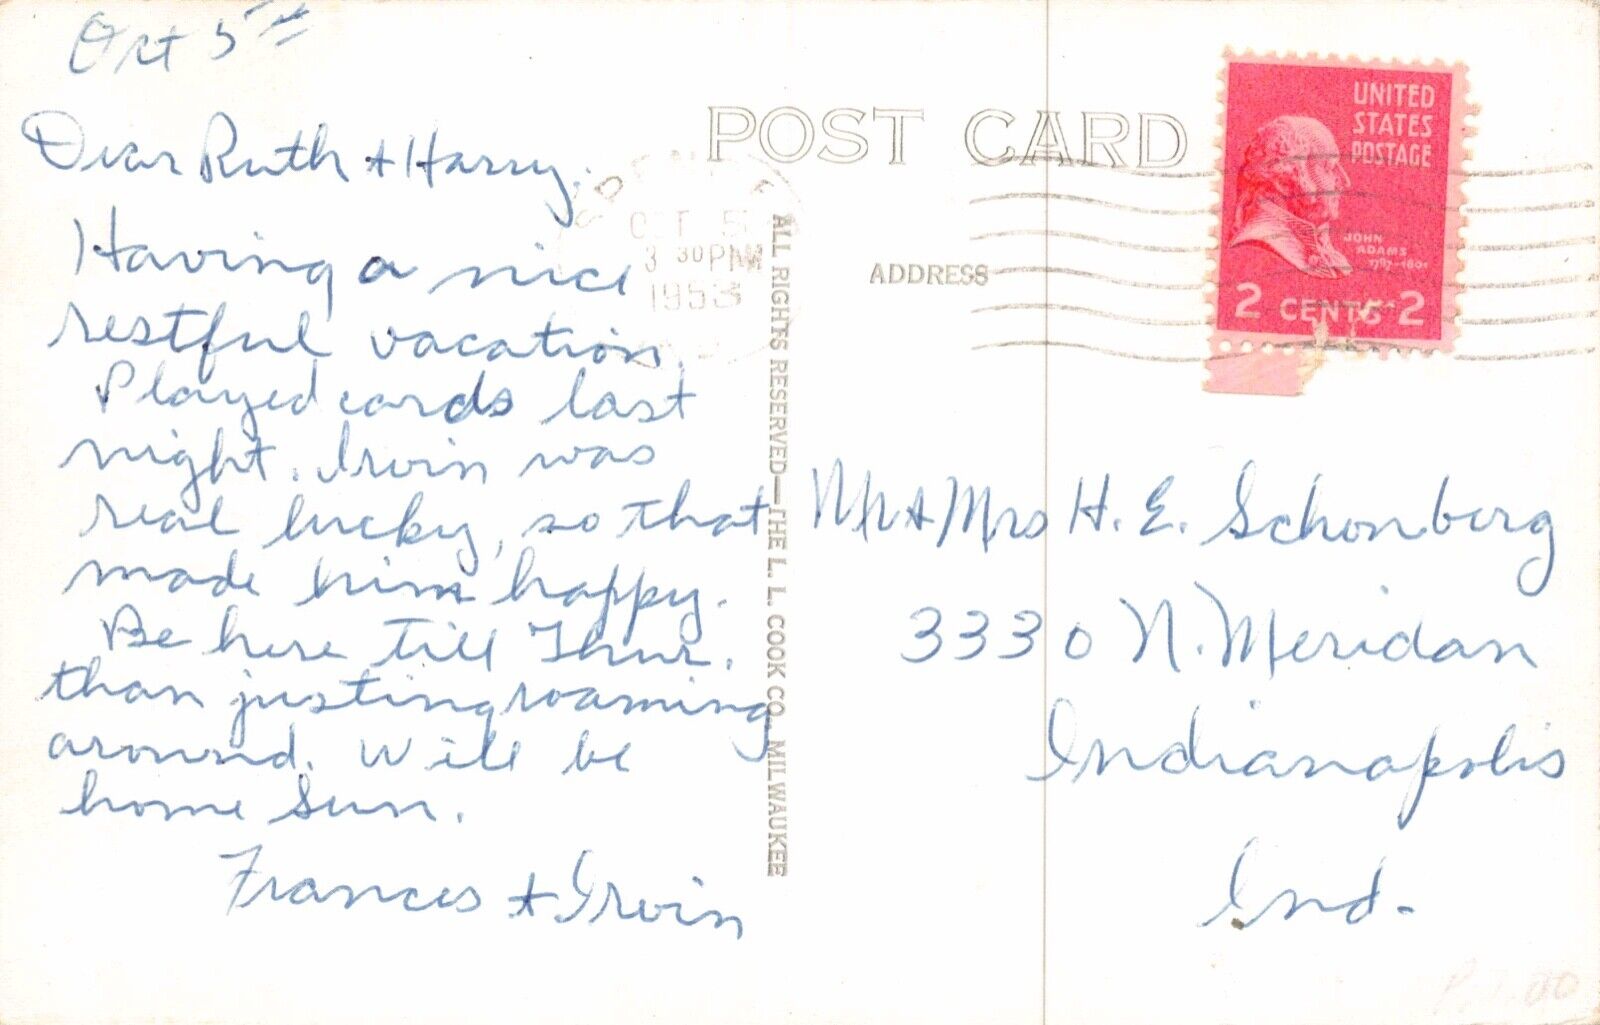 Oct 5th
Dear Ruth + Harry.
Having a nice
restful vacation.
Played cards last
night. Irvin was
real lucky, so that
made him happy.
Be here till Thur.
than justing roaming
around. Will be
home Sun.
Frances + Irvin
POST CARD
OCT 5
3 30 PM
1953
ALL RIGHTS RESERVED—THE L. L. COOK CO., MILWAUKEE
ADDRESS
UNITED
STATES
POSTAGE
JOHN
ADAMS
1797-1801
2 CENTS 2
Mr + Mrs H. E. Schonberg
3330 N. Meridan
Indianapolis
Ind.